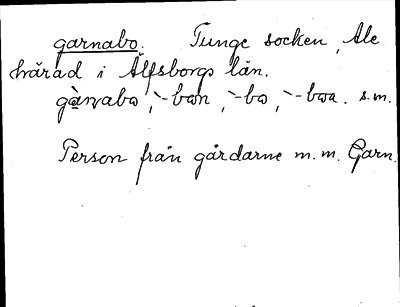 garnabo. Tunge socken, Ale
härad i Älfsborgs län.
gàrnabω, `-bωn, `-bω, `-bωa. s.m.
Person från gårdarne m.m. Garn.